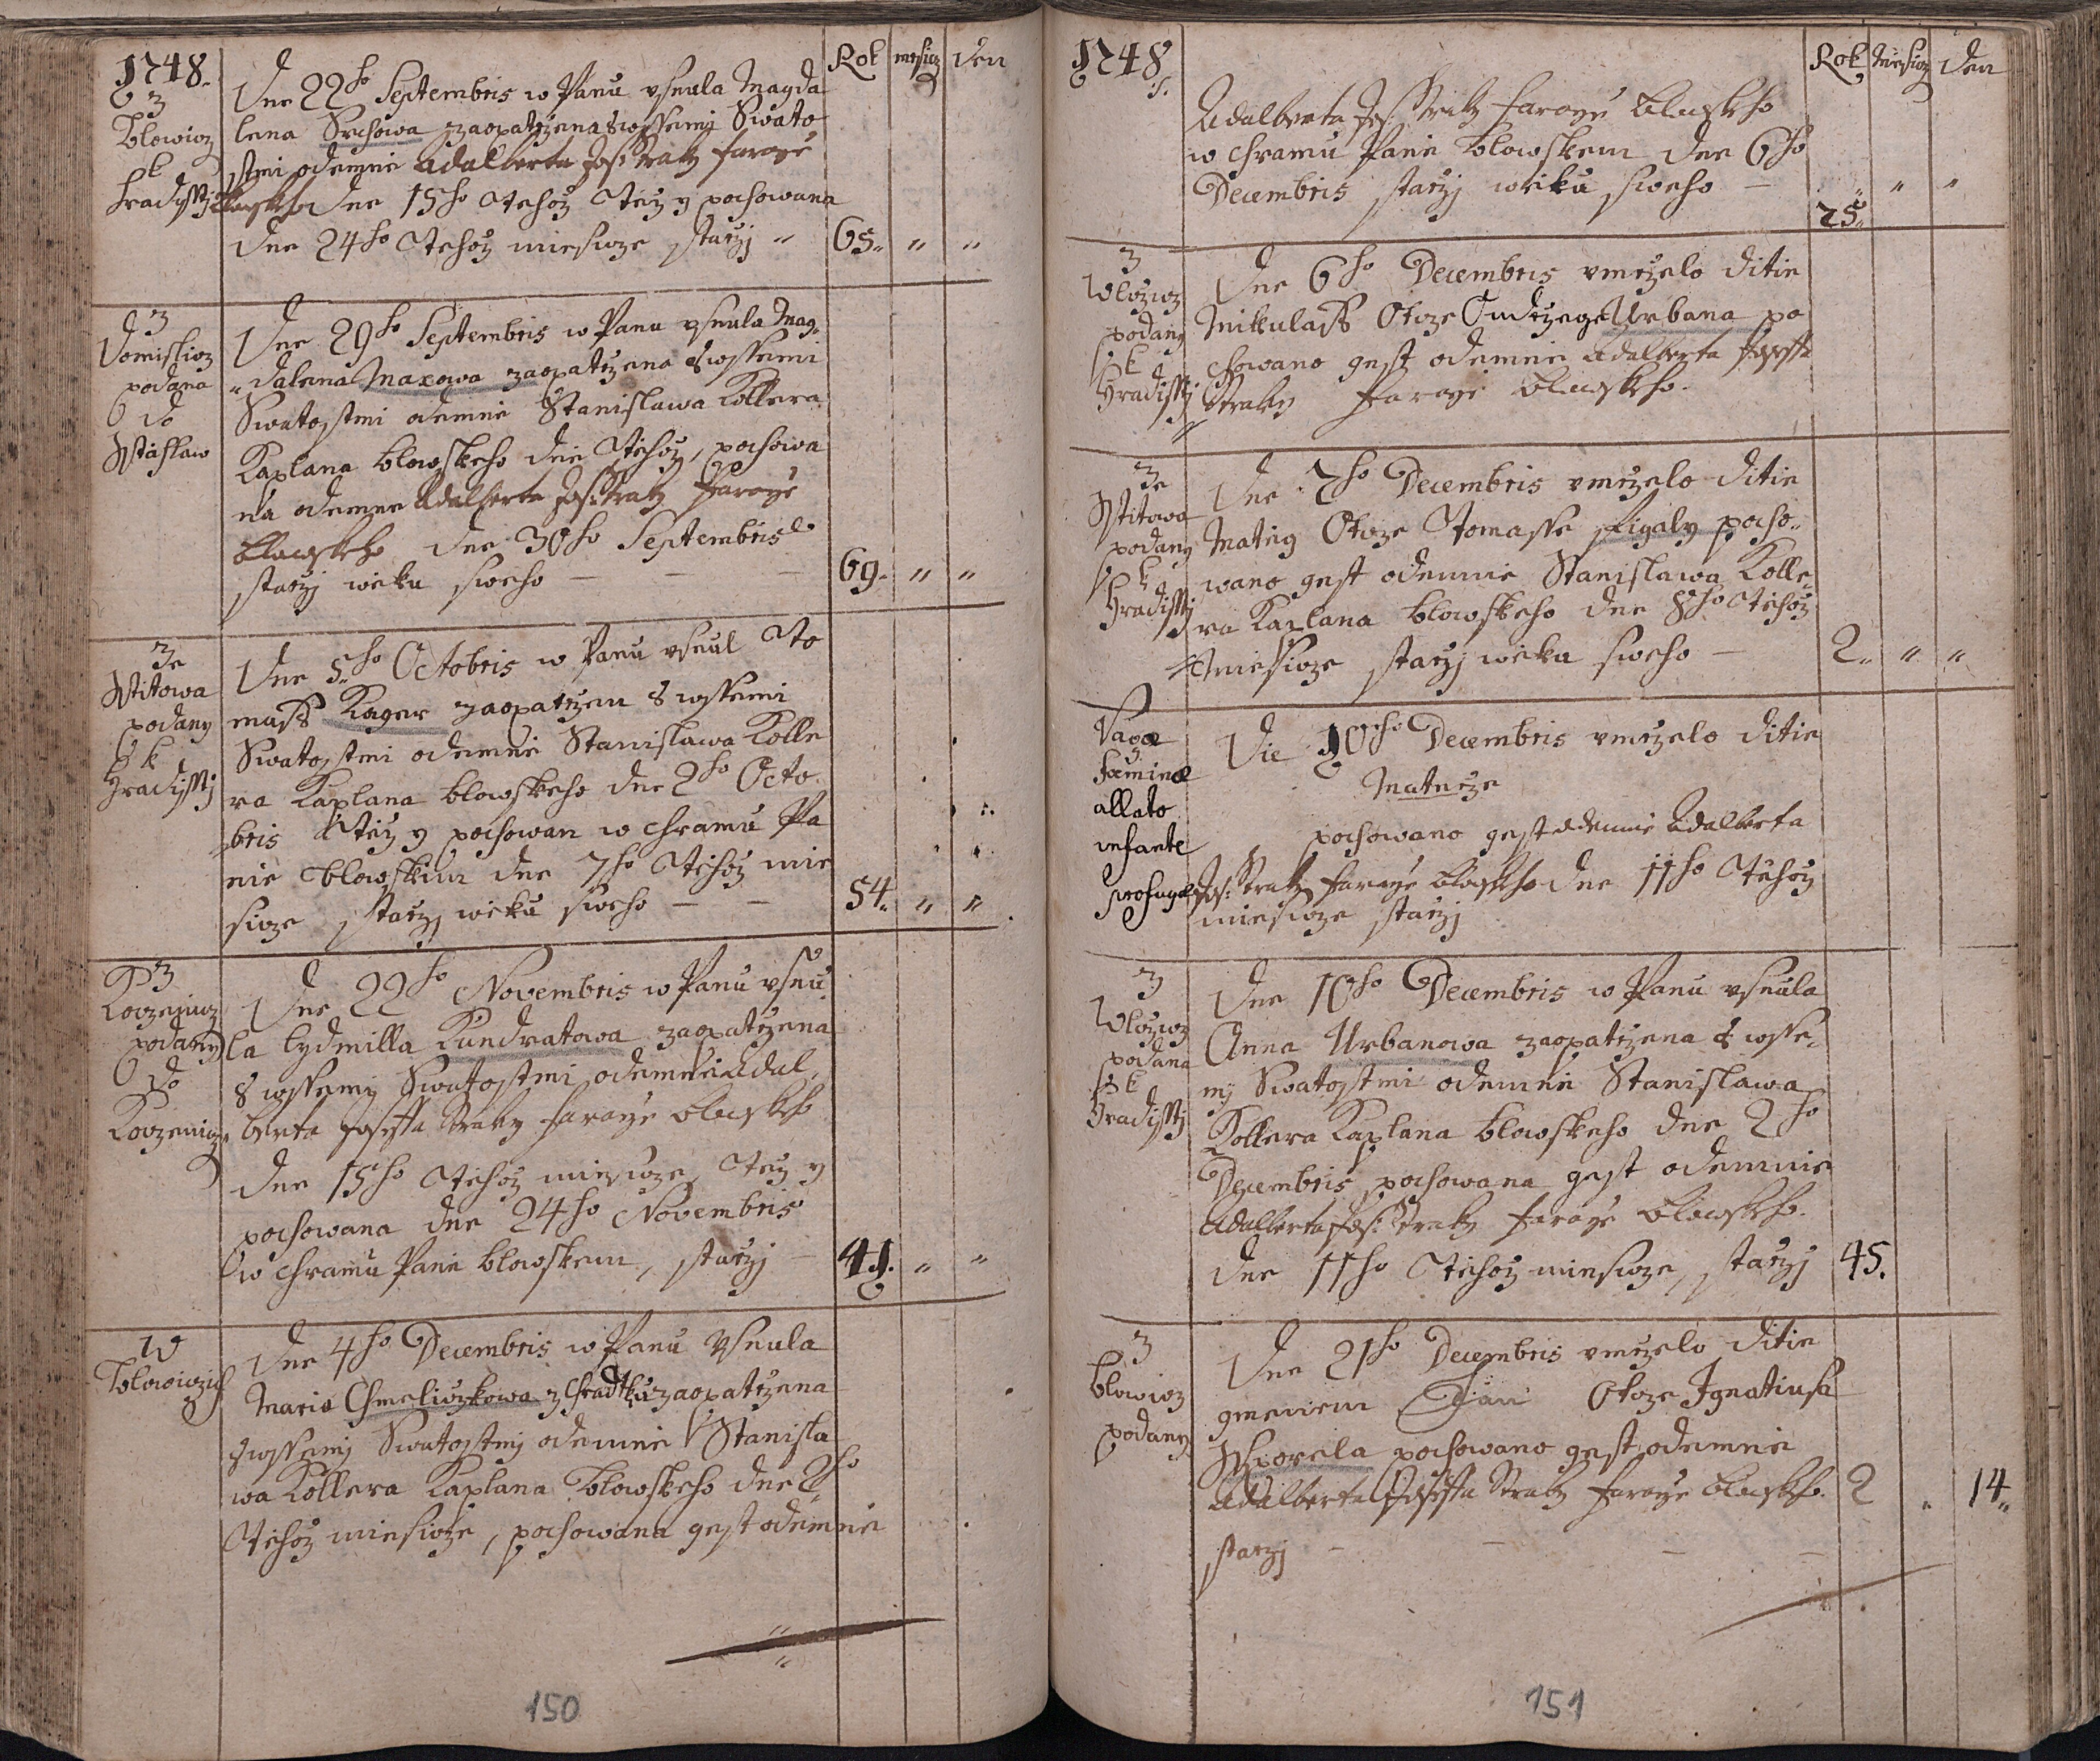 1748.
Rok mesicz Den
z
Blowicz
k
Hradisstj
Dne 22ho Septembris w Panu vsnula Magda
lena Srchowa zaopatrzena swssemj Swato
stmi odemne Adalberta Jos: Straky faraře
blowskeho dne 15ho tehoz tez y pochowana
dne 24ho tehoz miesicze starzj " 65. " "
z
Domislicz
podana
do
Wstislaw
Dne 29ho Septembris w Panu vsnula Mag,
dalena Maxowa zaopatrzena swssemi
Swatostmi odemne Stanislawa Kollera
Kaplana blowskeho dne tehoz, pochowa
na odemne Adalberta Jos: Straky faraře
blowskeho dne 30ho Septembris
starzj wieku sweho — — — 69. " "
Ze
Stitowa
podany
k
Hradisstj
Dne 5ho Octobris w Panu vsnul To
mass Kager zaopatrzen s wssemi
Swatostmi odemne Stanislawa Kolle
ra Kaplana blowskeho dne 2ho Octo
bris tez y pochowan w chramu Pa
nie blowskim dne 7ho tehoz mie
sicze starzj wieku sweho — — 54. " "
z
Kotzenicz
podany
do
Kotzenicz
Dne 22ho Novembris w Panu vsnu
la Lydmilla Kundratowa zaopatrzena
s wssemj Swatostmi odemne Adal,
berta Josefa Straky faraře blowskeho
dne 15ho tehoz miesicze, tez y
pochowana dne 24ho Novembris
w chramu Panie blowskem, starzj — 41. " "
W
Blowiczich
Dne 4ho Decembris w Panu vsnula
Maria Chmeliczkowa z Hradku zaopatrzena
swssemj Swatostmj odemne Stanisla
wa Kollera Kaplana blowskeho dne 2ho
tehoz miesicze, pochowana gest odemne
150
1748.
Rok Miesicz Den
Adalberta Jos: Straky faraře blowskeho
w chramu Panie blowskem dne 6ho
Decembris starzj wieku sweho — 25. " "
z
Wlczicz
podany
k
Hradisstj
Dne 6ho Decembris vmrzelo ditie
Mikulass Otcze Ondrzege Urbana po
chowano gest odemne Adalberta Josefa
Straky faraře blowskeho.
Ze
Stitowa
podany
k
Hradisstj
Dne 7ho Decembris vmrzelo ditie
Mateg Otcze Tomasse Figaly pocho-
wano gest odemne Stanislawa Kolle,
ra Kaplana blowskeho dne 8ho tehoz
miesicze starzj wieku sweho — 2. " "
Vagæ
fœminæ
allato
infante
profugæ
Die 10ho Decembris vmrzelo ditie
Materze
pochowano gest odemne Adalberta
Jos: Straky faraře blowskeho dne 11ho tehoz
miesicze starzj
z
Wlczicz
podana
k
Hradisstj
Dne 10ho Decembris w Panu vsnula
Anna Urbanowa zaopatrzena s wsse,
mj Swatostmi odemne Stanislawa
Kollera Kaplana blowskeho dne 2ho
Decembris, pochowana gest odemnie
Adalberta Jos: Straky faraře blowskeho.
dne 11ho tehoz miesicze, starzj 45.
z
blowicz
podany
Dne 21ho Decembris vmrzelo ditie
gmenem Jan Otcze Ignatiusa
pochowano gest odemnie
Adalberta Josefa Straky faraře blowskeho. 2 " 14.
starzj — — — —
151